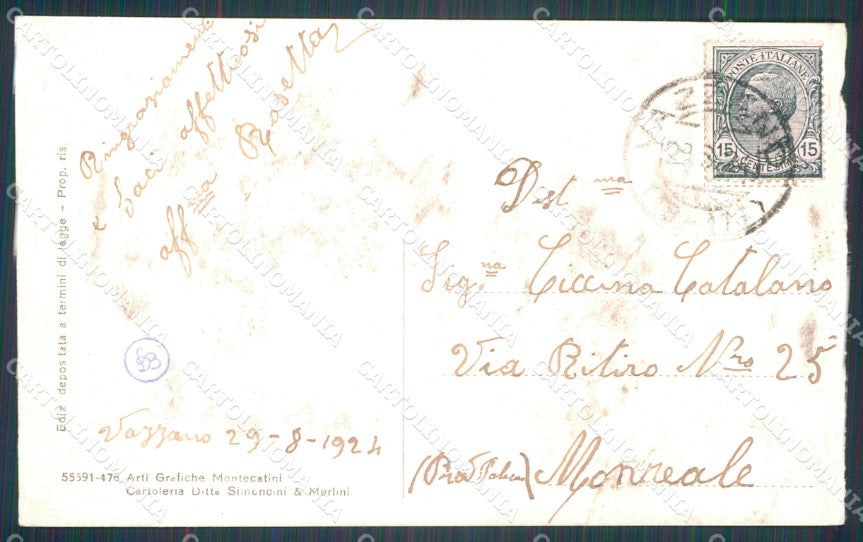 Ringraziamenti
e baci affettuosi
aff ma Rosetta
POSTE ITALIANE
15 15
Dest ma
Sig.na Ciccina Catalano
Via Ritiro Nro 25
Monreale
Vazzano 29-8-1924
55591-476 Arti Grafiche Montecatini
Cartoleria Ditta Simoncini & Merlini
Ediz depostata a termini di legge - Prop. ris.
CARTOLINOMANIA